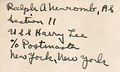 Ralph A Newcomb, AS
Section 11
U S S Harry Lee
c/o Postmaster
New York, New York